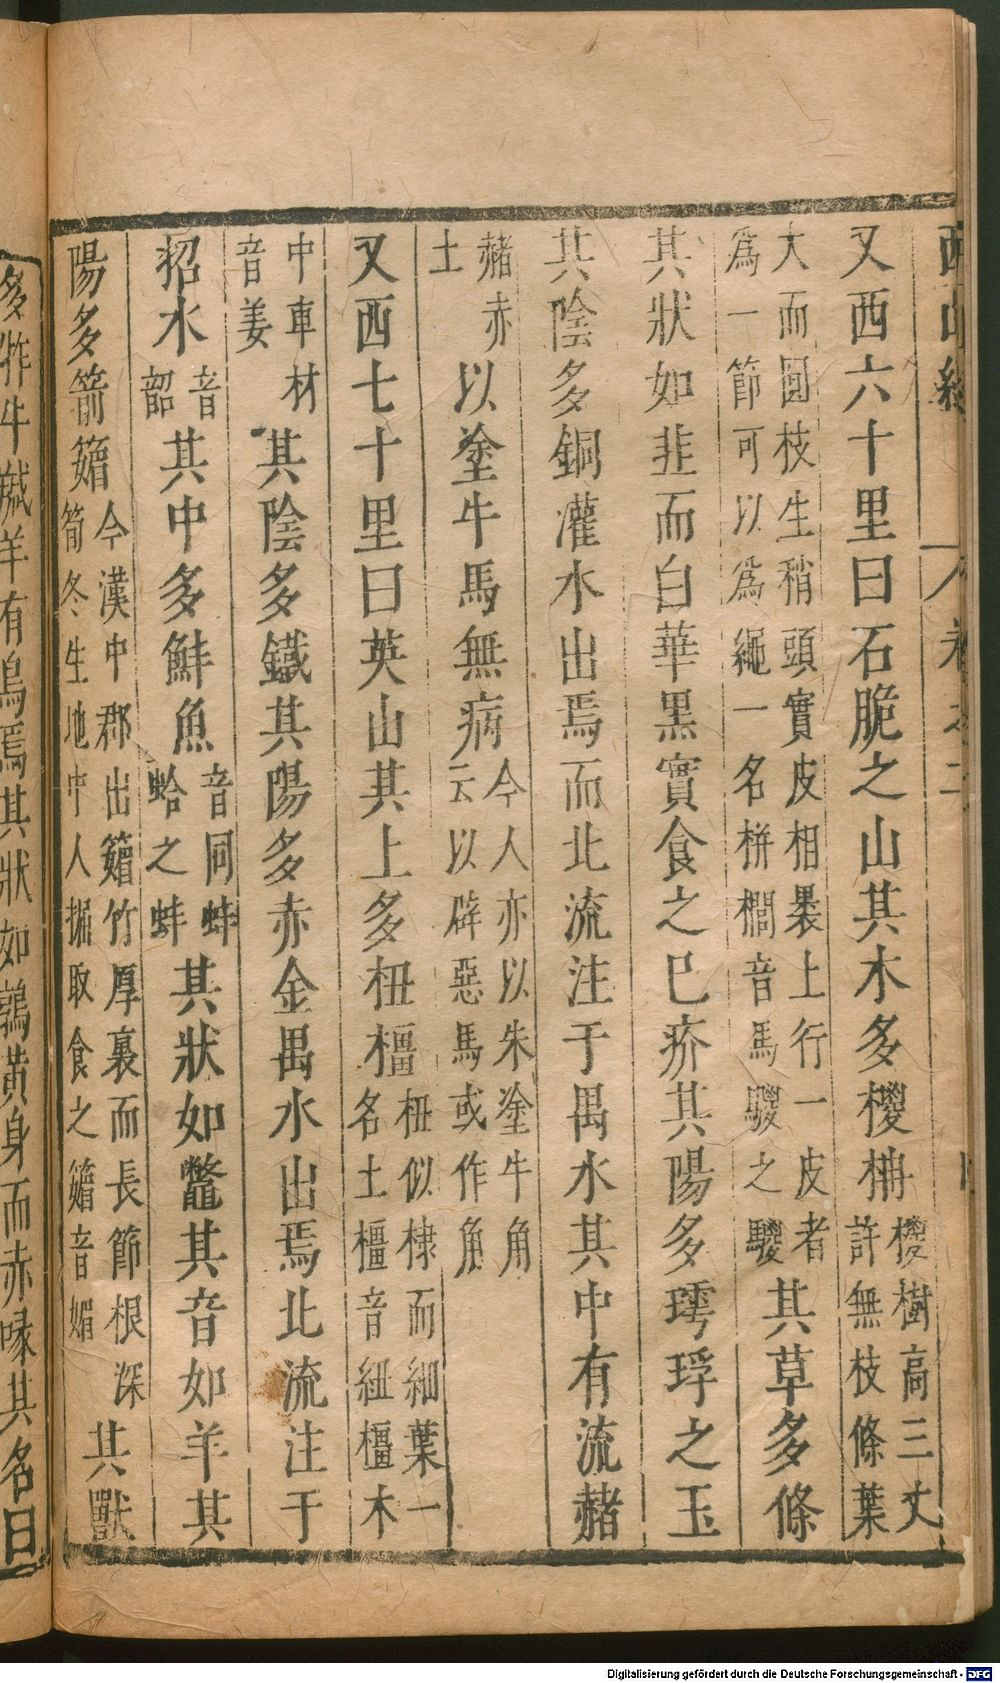 西山經 卷之二
又西六十里曰石脆之山其木多椶枏椶樹高三丈許無枝條葉
大而圓枝生稍頭實皮相裹上行一皮者為一節可以為繩一名栟櫚音馬騣之騣其草多條
其狀如韭而白華黑實食之已疥其陽多㻬琈之玉
其陰多銅灌水出焉而北流注于禺水其中有流赭
赭赤土以塗牛馬無病今人亦以朱塗牛角云以辟惡馬或作角
又西七十里曰英山其上多杻橿杻似棣而細葉一名土橿音紐橿木
中車材音姜其陰多鐵其陽多赤金禺水出焉北流注于
招水音韶其中多䱋魚音同蚌蛤之蚌其狀如鼈其音如羊其
陽多箭䉋今漢中郡出䉋竹厚裏而長節根深筍冬生地中人掘取食之䉋音媚其獸
多㸲牛羬羊有鳥焉其狀如鶉黃身而赤喙其名曰
Digitalisierung gefördert durch die Deutsche Forschungsgemeinschaft - DFG